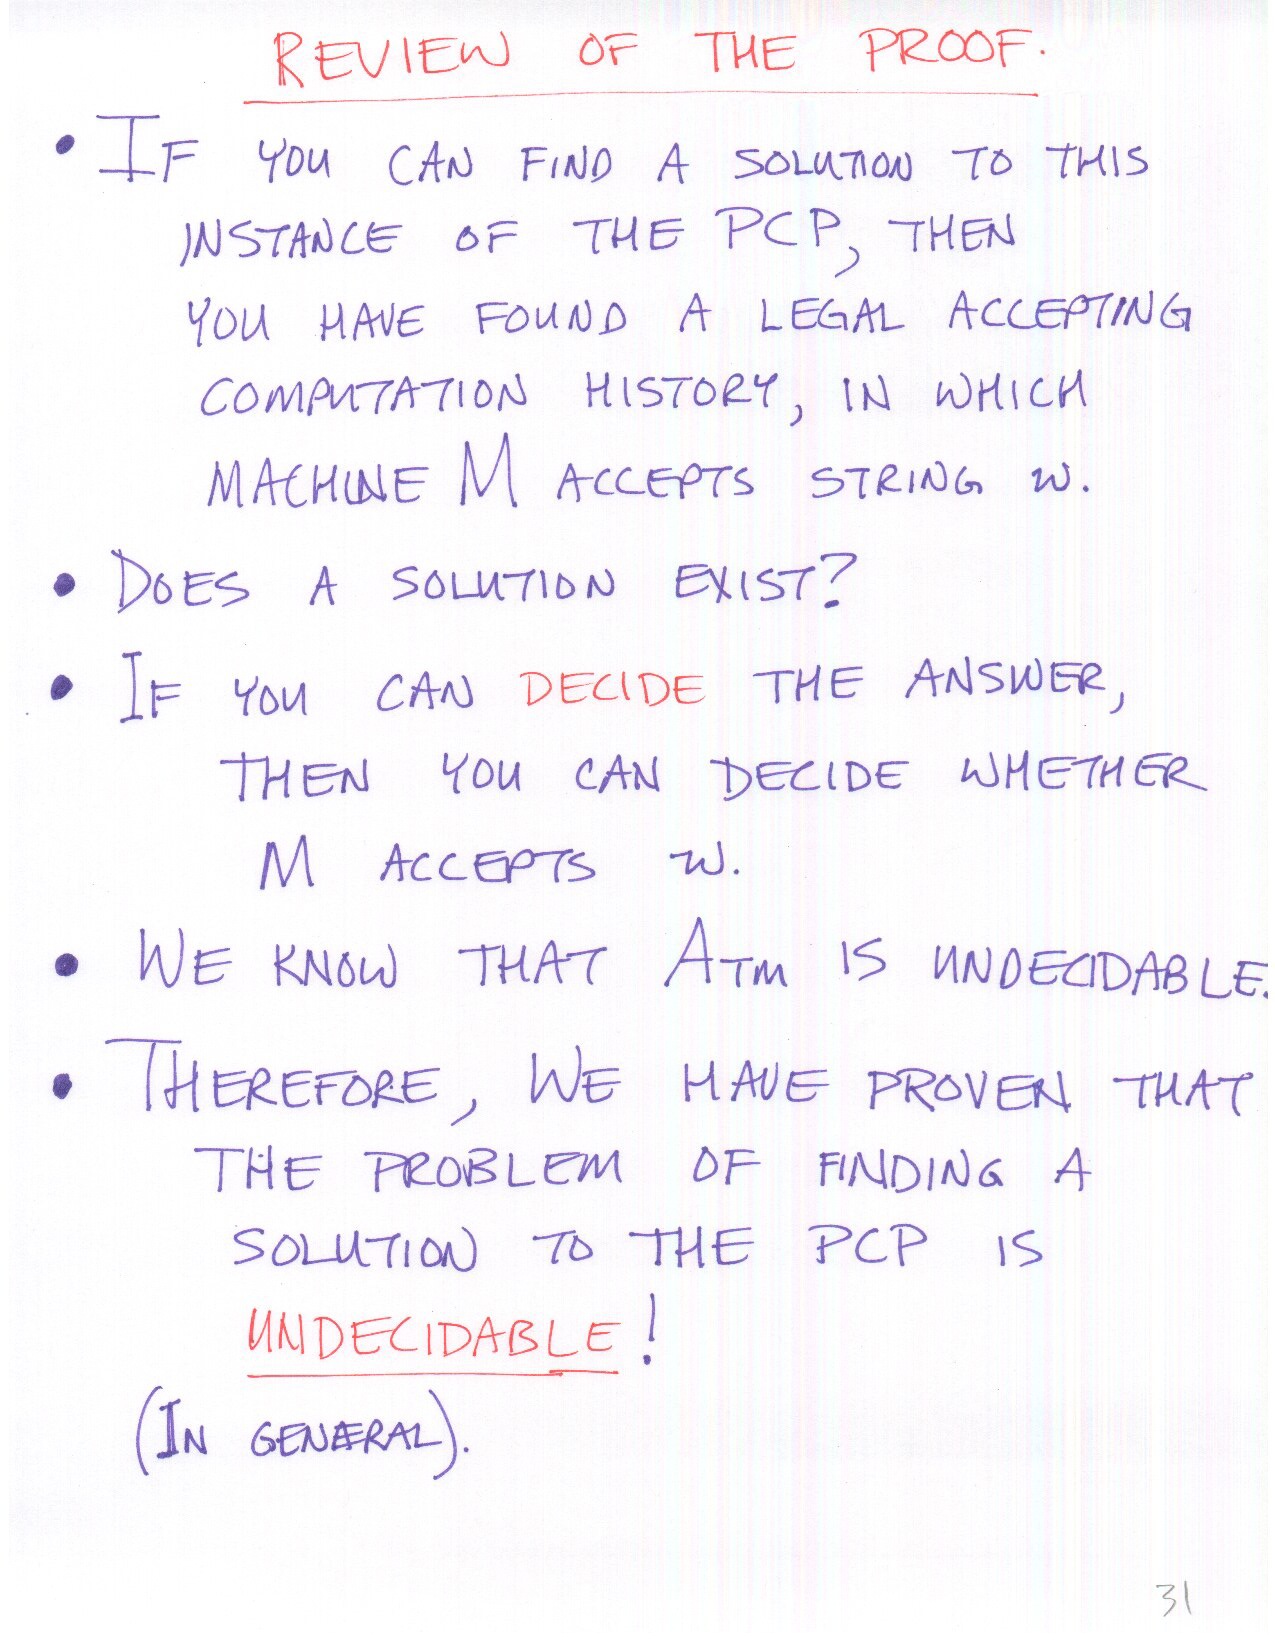 REVIEW OF THE PROOF.
• IF YOU CAN FIND A SOLUTION TO THIS
INSTANCE OF THE PCP, THEN
YOU HAVE FOUND A LEGAL ACCEPTING
COMPUTATION HISTORY, IN WHICH
MACHINE M ACCEPTS STRING w.
• DOES A SOLUTION EXIST?
• IF YOU CAN DECIDE THE ANSWER,
THEN YOU CAN DECIDE WHETHER
M ACCEPTS w.
• WE KNOW THAT ATM IS UNDECIDABLE.
• THEREFORE, WE HAVE PROVEN THAT
THE PROBLEM OF FINDING A
SOLUTION TO THE PCP IS
UNDECIDABLE!
(IN GENERAL).
31